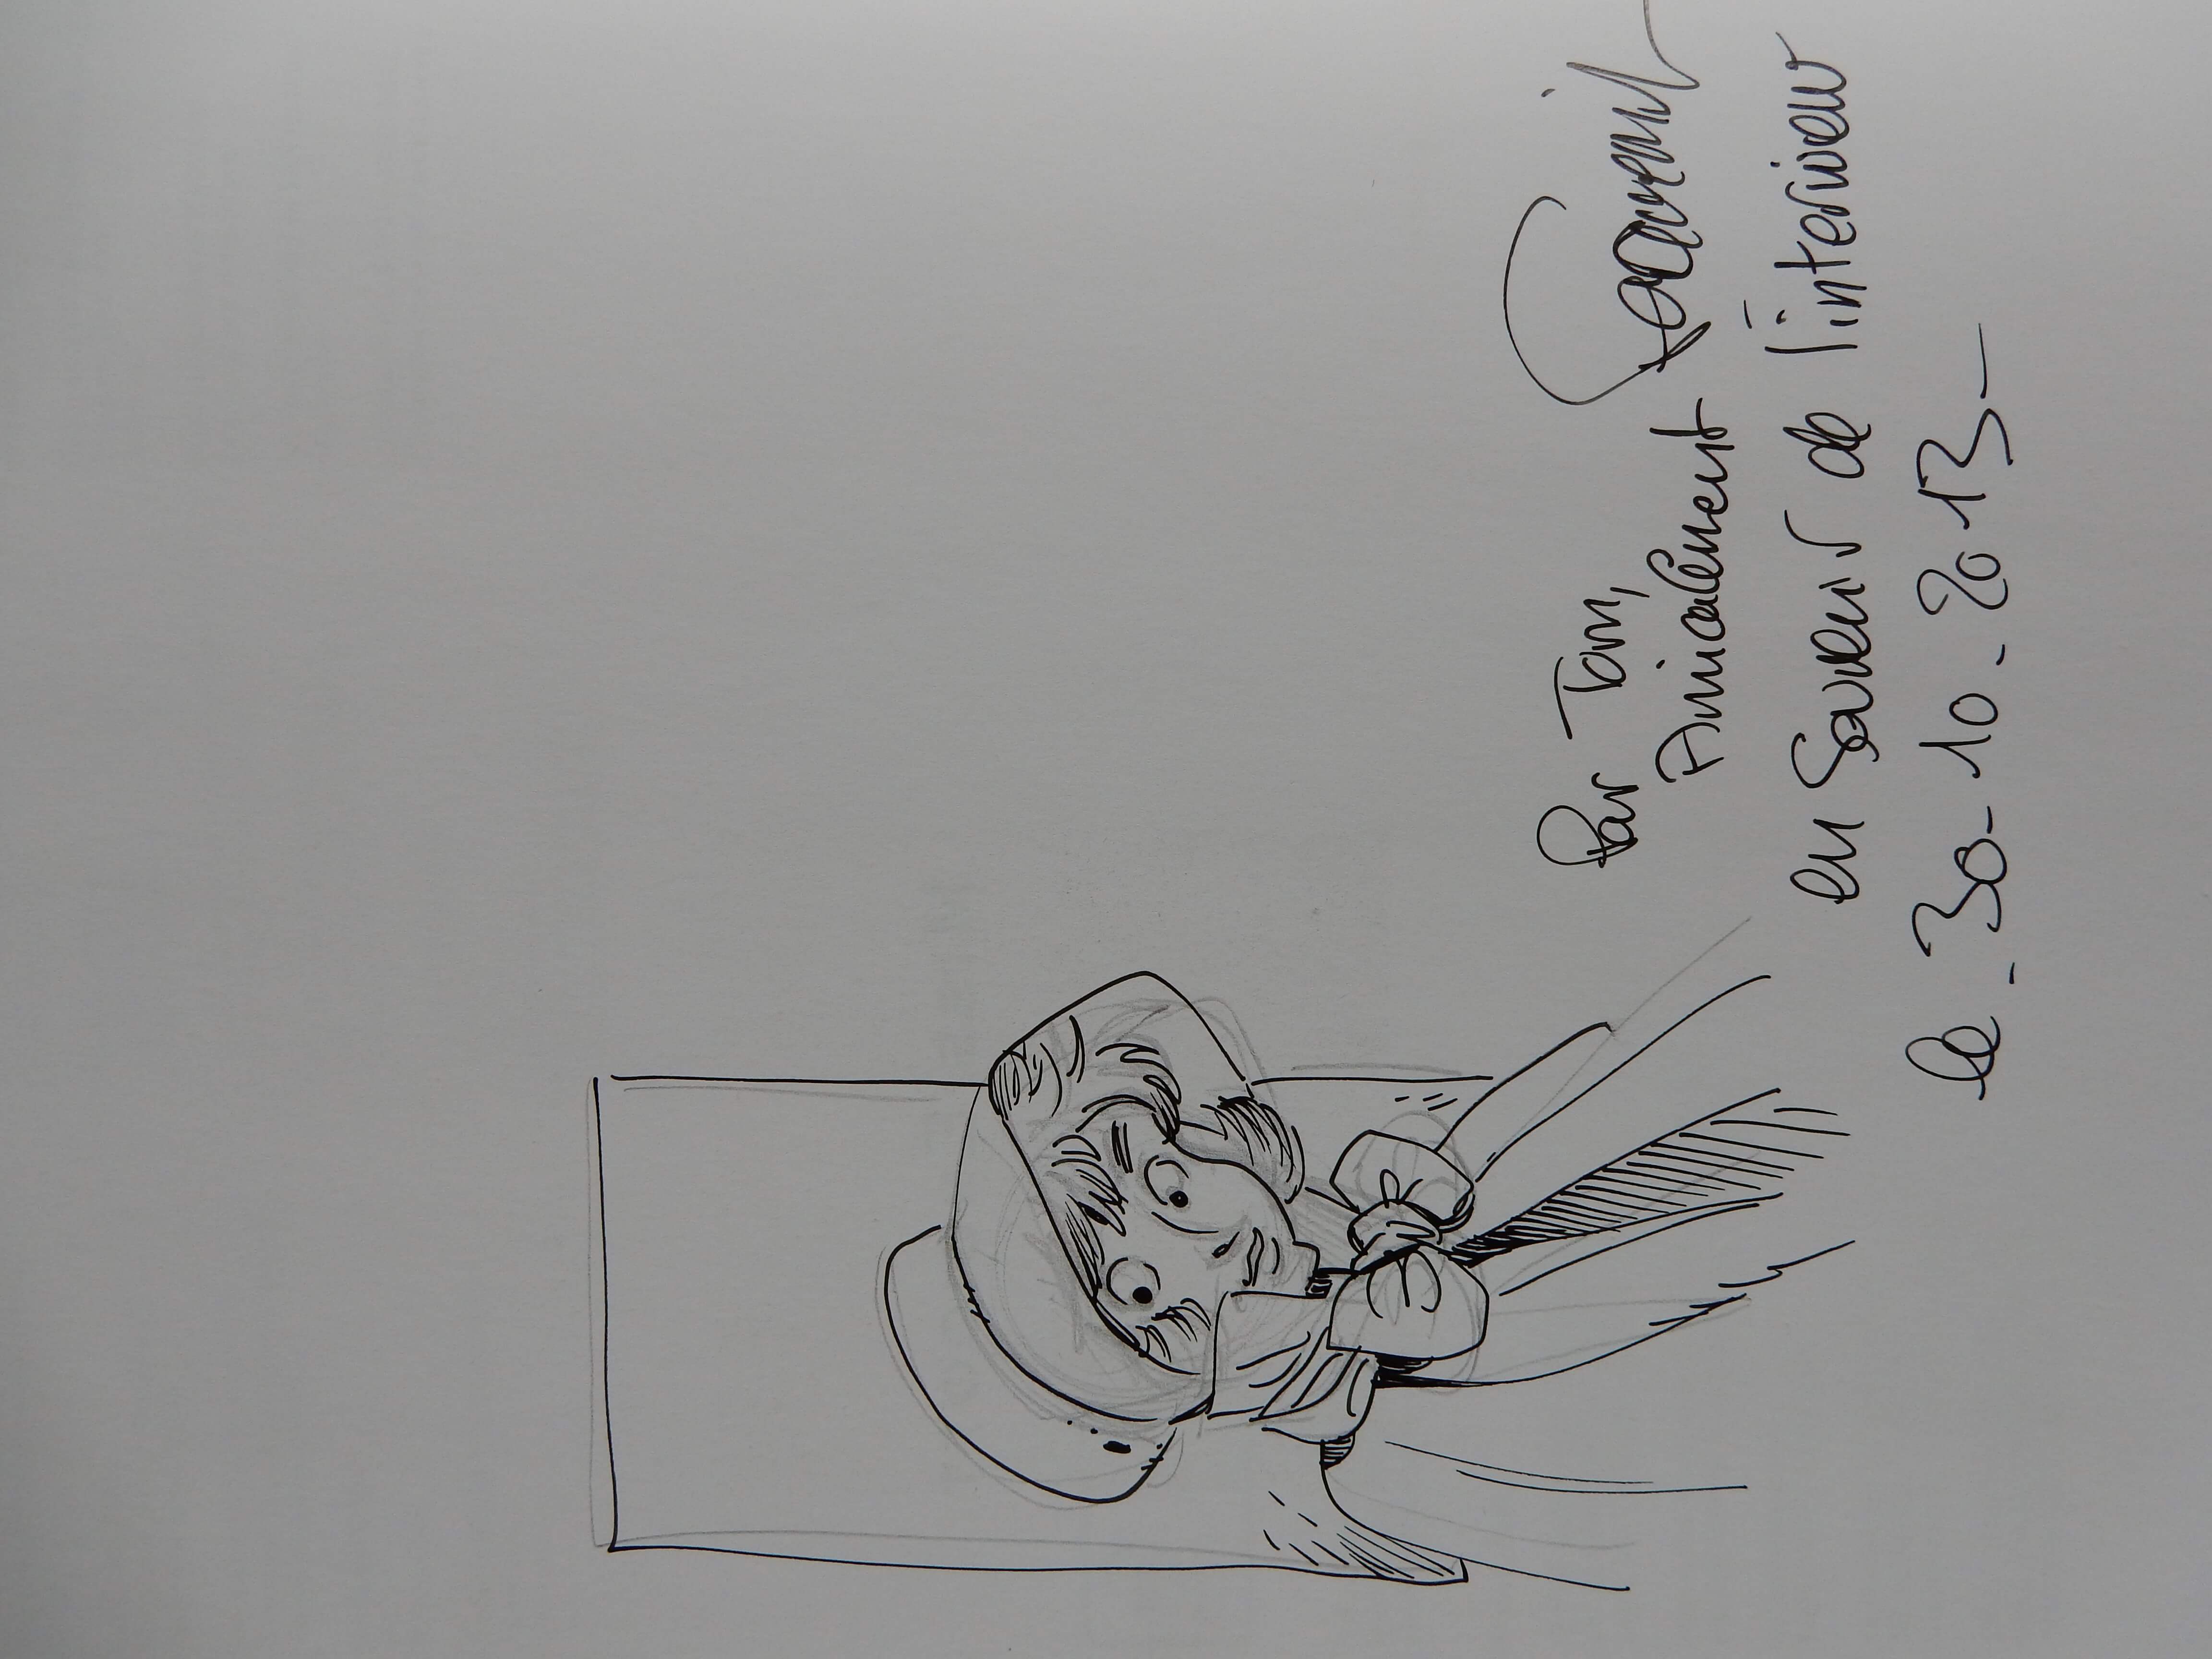 Pour Tom,
Amicalement
en Souvenir de l'interview
le - 30 - 10 - 2013 -